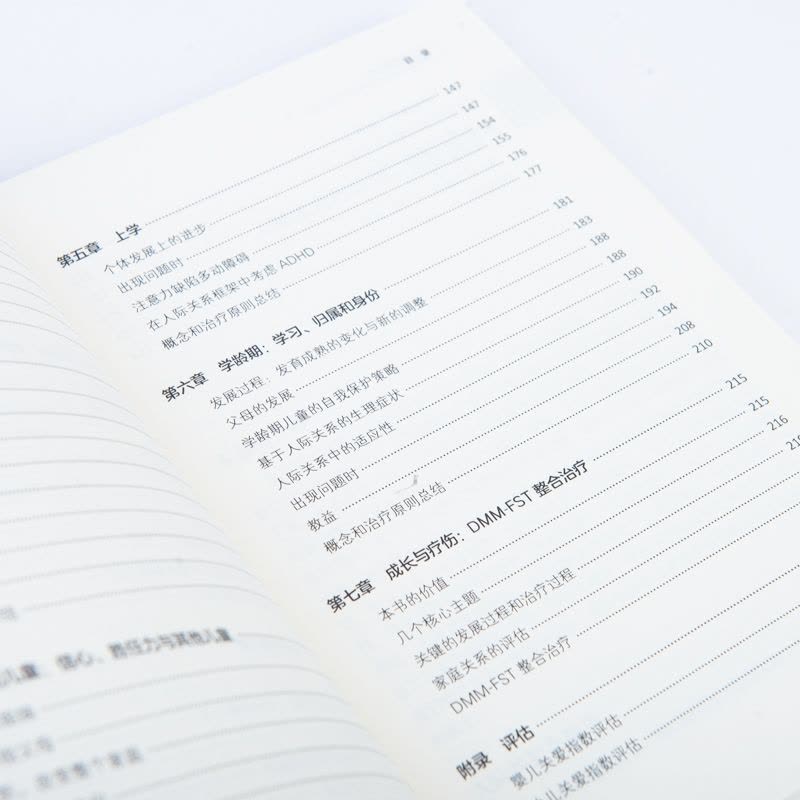 目 录
第五章 上学 147
个体发展上的进步 147
出现问题时 154
注意力缺陷多动障碍 155
在人际关系框架中考虑 ADHD 176
概念和治疗原则总结 177
第六章 学龄期：学习、归属和身份 181
发展过程：发育成熟的变化与新的调整 183
父母的发展 188
学龄期儿童的自我保护策略 188
基于人际关系的生理症状 190
人际关系中的适应性 192
出现问题时 194
教益 208
概念和治疗原则总结 210
第七章 成长与疗伤：DMM-FST 整合治疗 215
本书的价值 215
几个核心主题 216
关键的发展过程和治疗过程
家庭关系的评估
DMM-FST 整合治疗
附录 评估
婴儿关爱指数评估
儿关爱指数评估